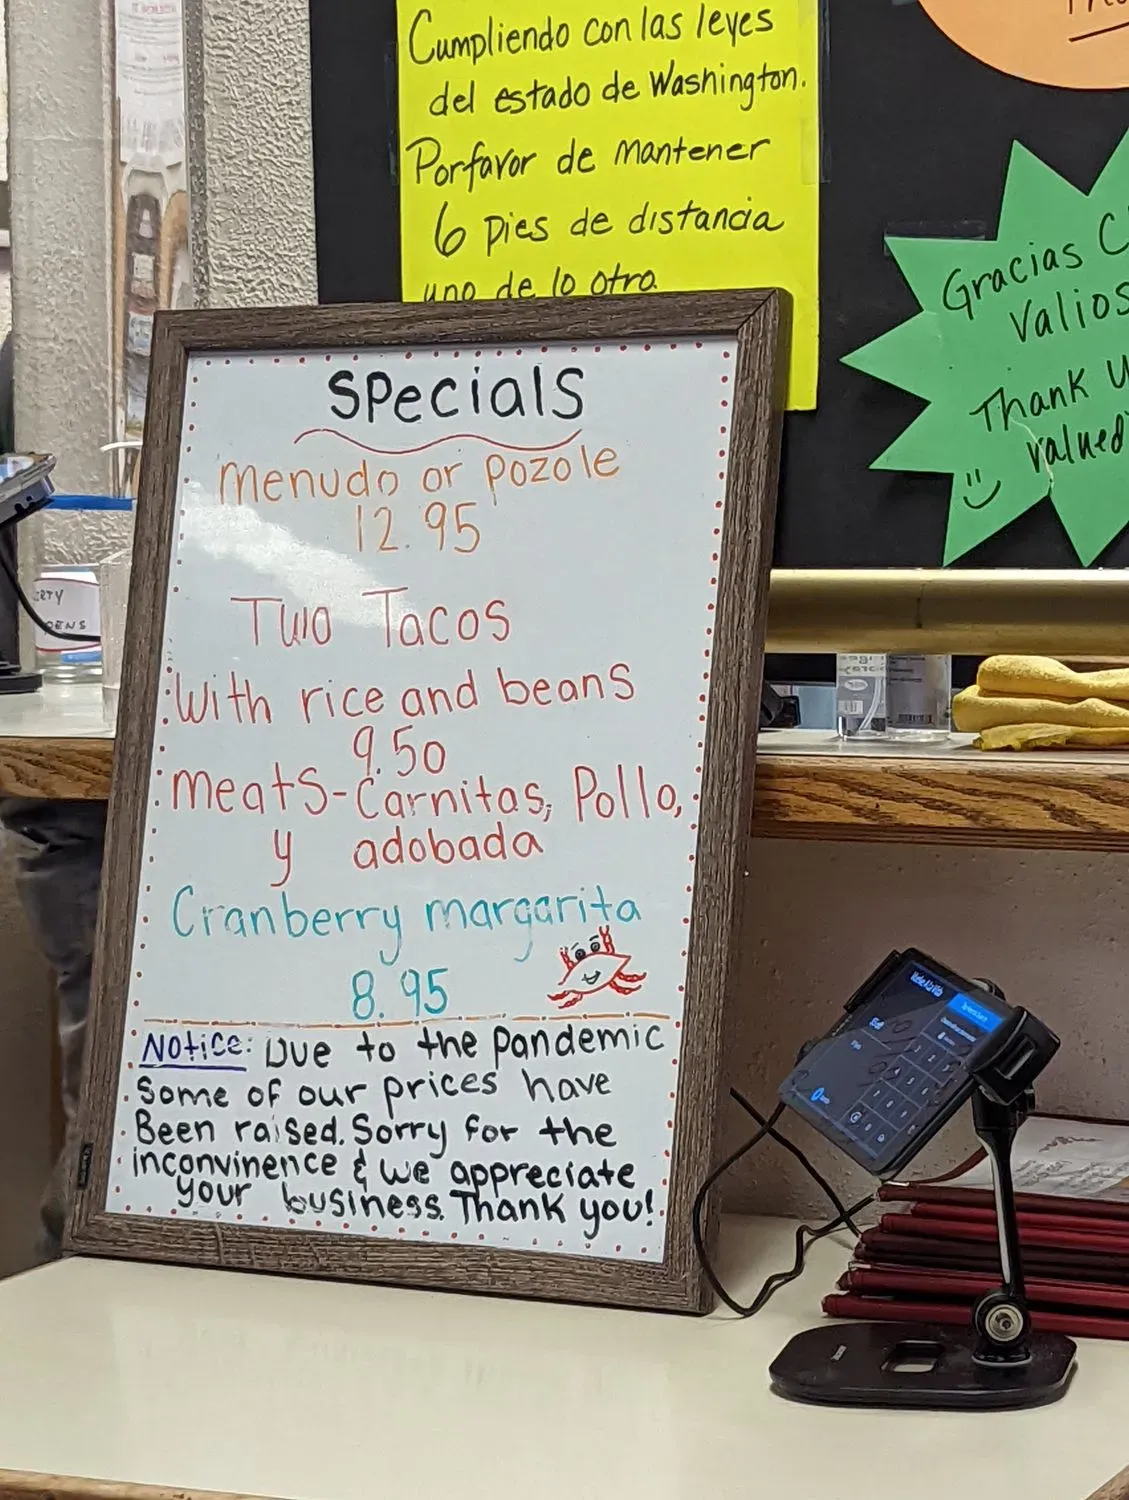 Cumpliendo con las leyes
del estado de Washington.
Porfavor de mantener
6 pies de distancia
uno de lo otro.
Gracias
Valios
Thank
valued
Specials
Menudo or Pozole
12.95
Two Tacos
With rice and beans
9.50
Meats-Carnitas, Pollo,
y adobada
Cranberry margarita
8.95
Notice: Due to the pandemic
some of our prices have
Been raised. Sorry for the
inconvinence & we appreciate
your business. Thank you!